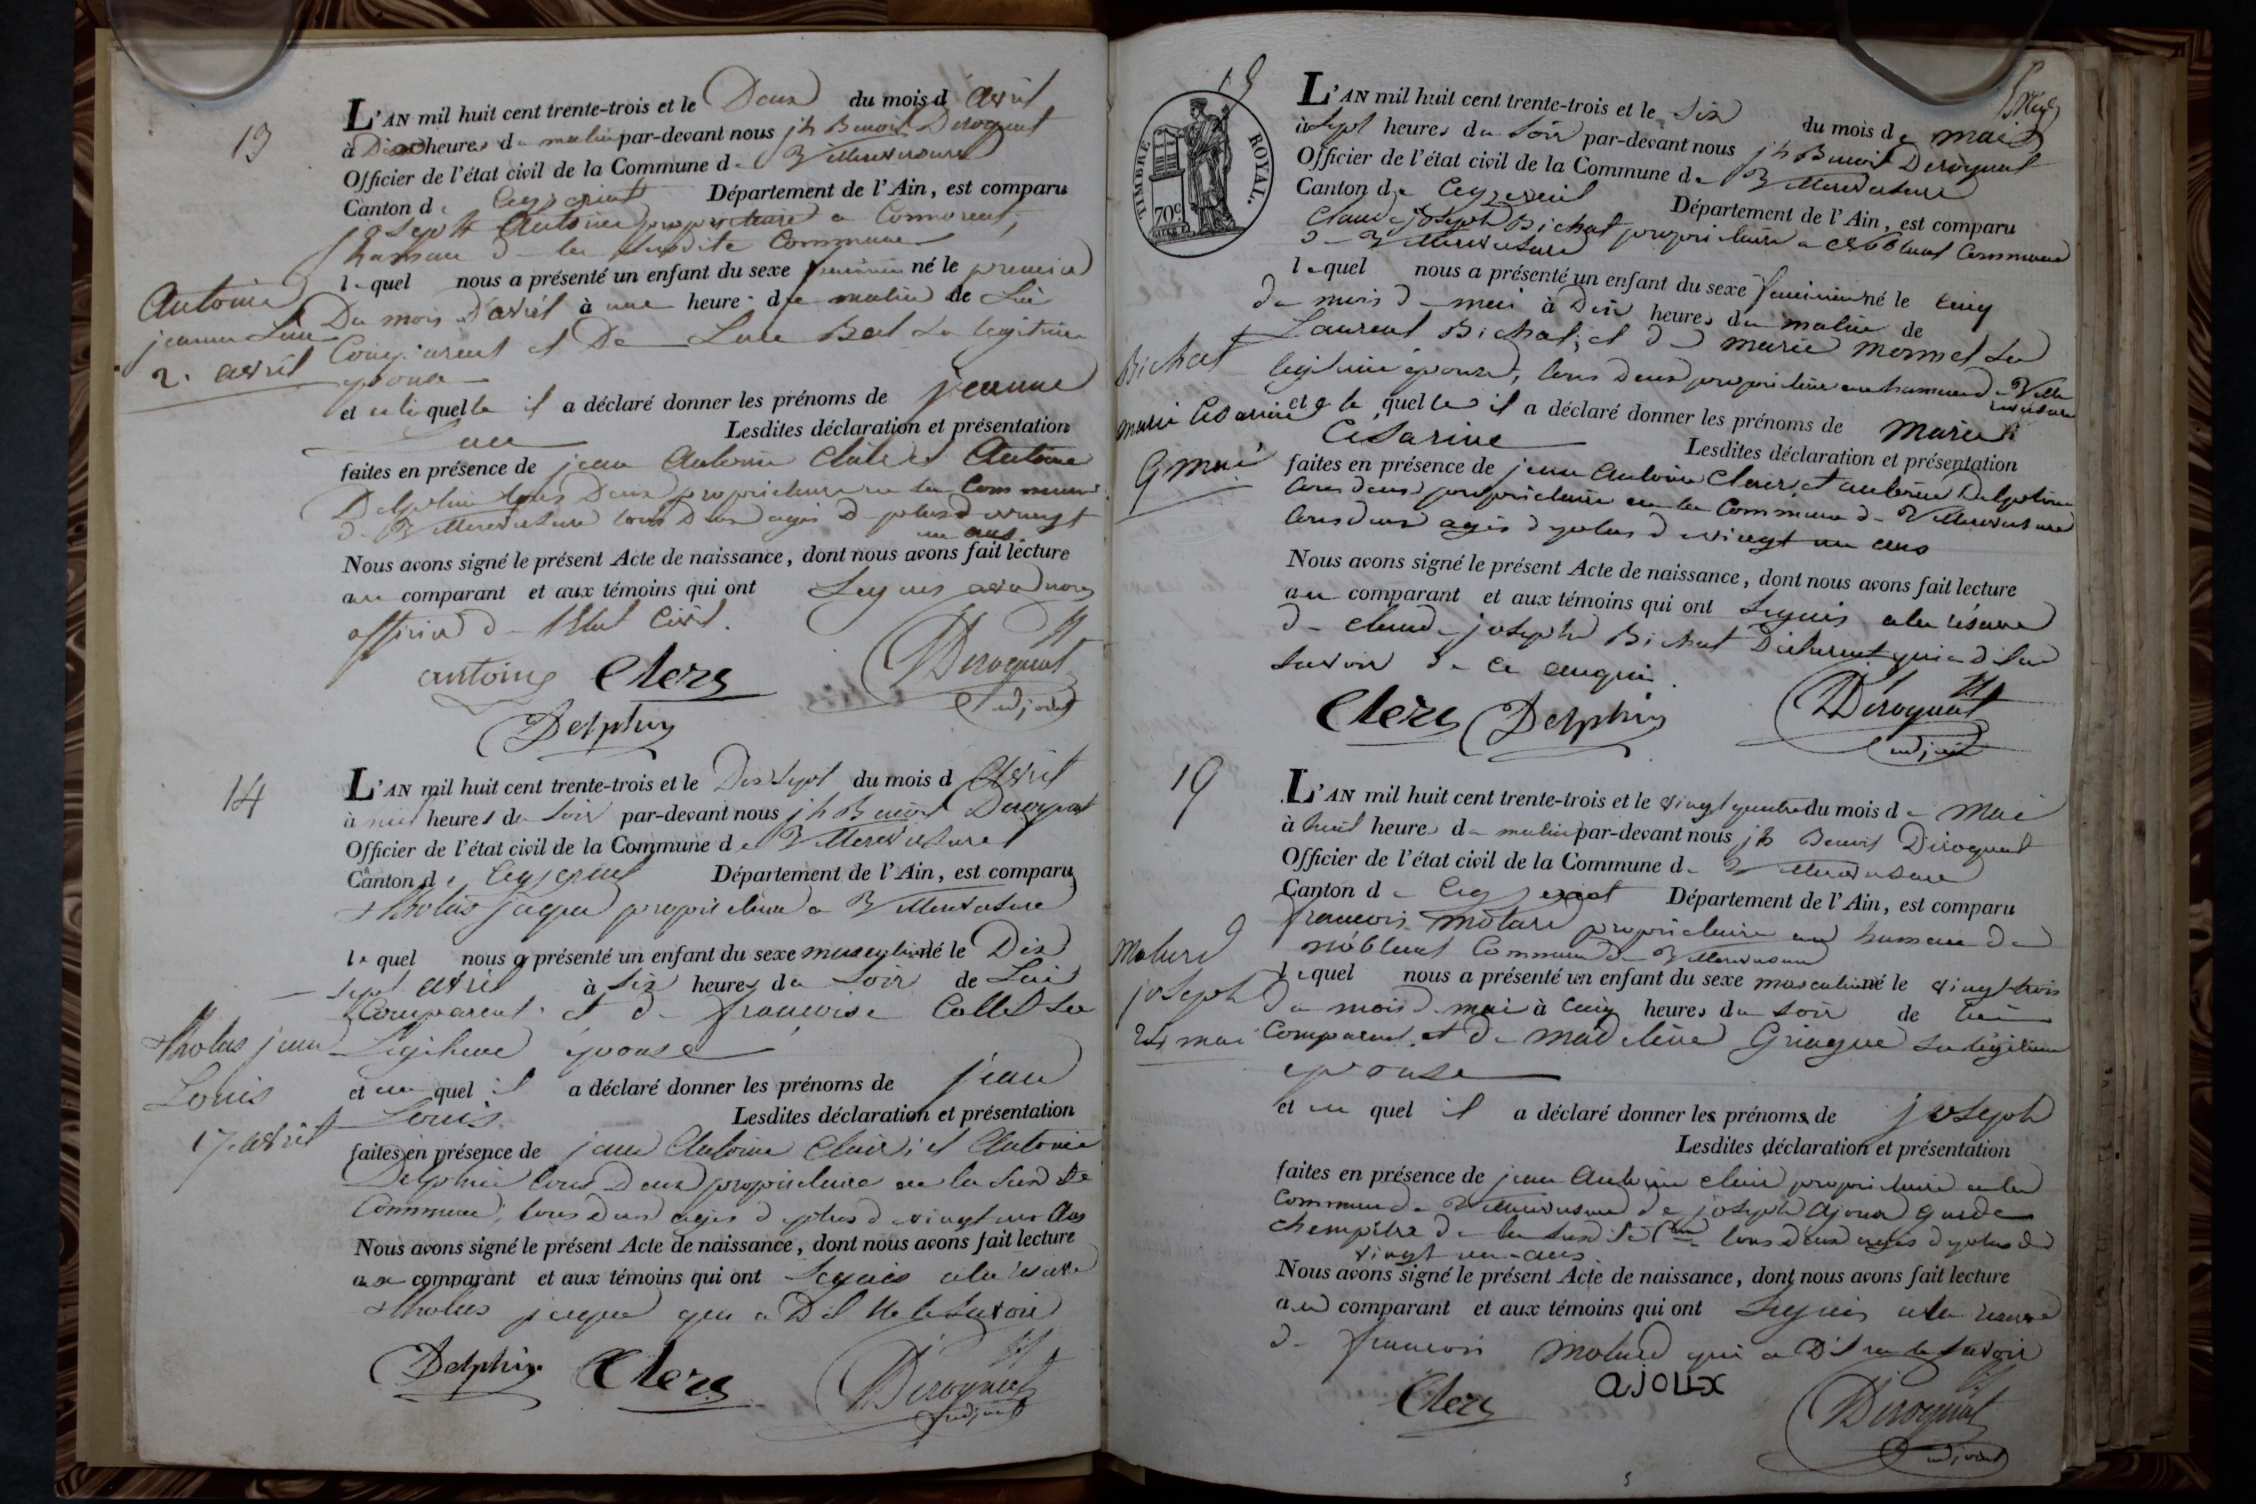 13
L'AN mil huit cent trente-trois et le Deux du mois d avril
à Dix heures du matin par-devant nous jh Benoit Deroquat
Officier de l'état civil de la Commune de Villereversure
Canton de Ceyzeriat Département de l'Ain, est comparu
joseph Antoine proprietaire a
hameau de la susdite Commune
lequel nous a présenté un enfant du sexe feminin né le premier
Antoine
jeanne Luce
2. avril
Du mois d'avril à une heure du matin de Lui
Comparent et De Luce Bal sa legitime
epouse
et a la quelle il a déclaré donner les prénoms de jeanne
Luce Lesdites déclaration et présentation
faites en présence de jean Antoine Clair et Antoine
Delphin tous Deux proprietaire en la Commune
de Villereversure tous Deux agés de plus de vingt
un ans
Nous avons signé le présent Acte de naissance, dont nous avons fait lecture
au comparant et aux témoins qui ont Signés avec nous
officier de l'Etat Civil.
antoine Clerc Deroquat
Delphin adjoint
14
L'AN mil huit cent trente-trois et le Dix Sept du mois d Avril
à heures du soir par-devant nous jh Benoit Deroquat
Officier de l'état civil de la Commune de Villereversure
Canton de Ceyzeriat Département de l'Ain, est comparu
jaque propriétaire a Villereversure
lequel nous a présenté un enfant du sexe masculin né le Dix
Sept avril à Six heures du Soir de Lui
Comparent et de françoise Collet Sa
jean
Louis
17. avril
Legitime epouse
et au quel il a déclaré donner les prénoms de jean
Louis. Lesdites déclaration et présentation
faites en présence de jean Antoine Clair, et Antoine
Delphin tous Deux propriétaire en la Susdite
Commune, tous Deux agés de plus de vingt un Ans
Nous avons signé le présent Acte de naissance, dont nous avons fait lecture
au comparant et aux témoins qui ont Signés a la réserve
jaque qui a Dit ne le Savoir
Delphin Clerc Deroquat
adjoint
TIMBRE ROYAL.
70c
L'AN mil huit cent trente-trois et le Six du mois de mai
à Sept heures du Soir par-devant nous jh Benoit Deroquat
Officier de l'état civil de la Commune de Villereversure
Canton de Ceyzeriat Département de l'Ain, est comparu
Claude joseph Bichat propriétaire a Commune
de Villereversure
lequel nous a présenté un enfant du sexe feminin né le cinq
du mois de mai à Dix heures du matin de
Bichat
marie Césarine
6 mai
Laurent Bichat, et de marie monnet Sa
legitime épouse, tous Deux propriétaire au hameau de Ville
reversure
et a la quelle il a déclaré donner les prénoms de Marie
Césarine Lesdites déclaration et présentation
faites en présence de jean Antoine Clair, et antoine Delphin
tous deux propriétaire en la Commune de Villereversure
tous deux agés de plus de vingt un ans
Nous avons signé le présent Acte de naissance, dont nous avons fait lecture
au comparant et aux témoins qui ont Signés a la réserve
de claude joseph Bichat
Savoir de ce enquis.
Clerc Delphin Deroquat
adjoint
19
L'AN mil huit cent trente-trois et le vingt quatre du mois de Mai
à huit heures du matin par-devant nous jh Benoit Deroquat
Officier de l'état civil de la Commune de Villereversure
Canton de Ceyzeriat Département de l'Ain, est comparu
françois molard propriétaire au hameau de
Commune de Villereversure
lequel nous a présenté un enfant du sexe masculin né le vingt trois
Molard
joseph
24 mai
du mois de mai à cinq heures du soir de lui
Comparent et de madeleine Sa légitime
epouse
et au quel il a déclaré donner les prénoms de joseph
Lesdites déclaration et présentation
faites en présence de jean Antoine clair propriétaire en la
Commune de Villereversure de joseph Ajoux garde
champêtre de la susdite Cne tous deux agés de plus de
vingt un ans
Nous avons signé le présent Acte de naissance, dont nous avons fait lecture
au comparant et aux témoins qui ont Signés a la reserve
de françois molard qui a Dit ne le Savoir
Clerc ajoux Deroquat
adjoint